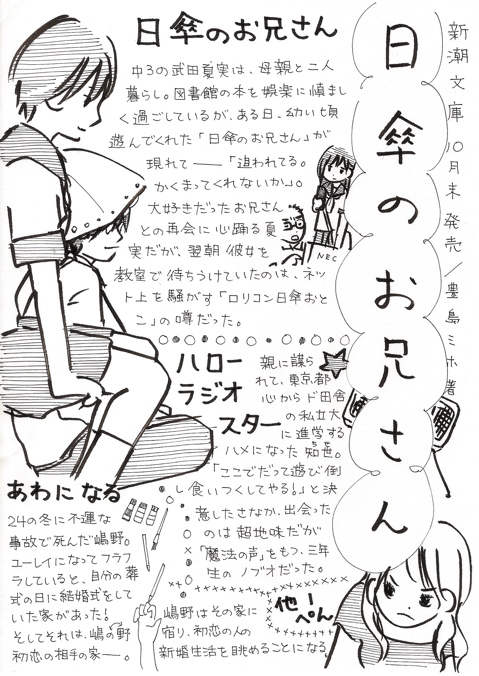 新潮文庫 10月末 発売/豊島ミホ 著
日傘のお兄さん
日傘のお兄さん
中3の武田夏実は、母親と二人
暮らし。図書館の本を娯楽に慎まし
く過ごしているが、ある日、幼い頃
遊んでくれた「日傘のお兄さん」が
現れて――「追われてる。
かくまってくれないか」。
大好きだったお兄さん
との再会に心踊る夏
実だが、翌朝彼女を
教室で待ちうけていたのは、ネッ
ト上を騒がす「ロリコン日傘おと
こ」の噂だった。
NEC
ハロー
ラジオ
スター
親に謀ら
れて、東京都
心からド田舎
の私立大
に進学する
ハメになった知世。
ちせ
「ここでだって遊び倒
し食いつくしてやる!」と決
意したさなか、出会った
のは超地味だが
「魔法の声」をもつ、三年
生のノブオだった。
あわになる
24の冬に不運な
事故で死んだ嶋野。
ユーレイになってフラフ
ラしていると、自分の葬
式の日に結婚式をして
いた家があった!
そしてそれは、嶋野の
初恋の相手の家―。
嶋野はその家に
宿り、初恋の人の
新婚生活を眺めることになる。
他1ぺん